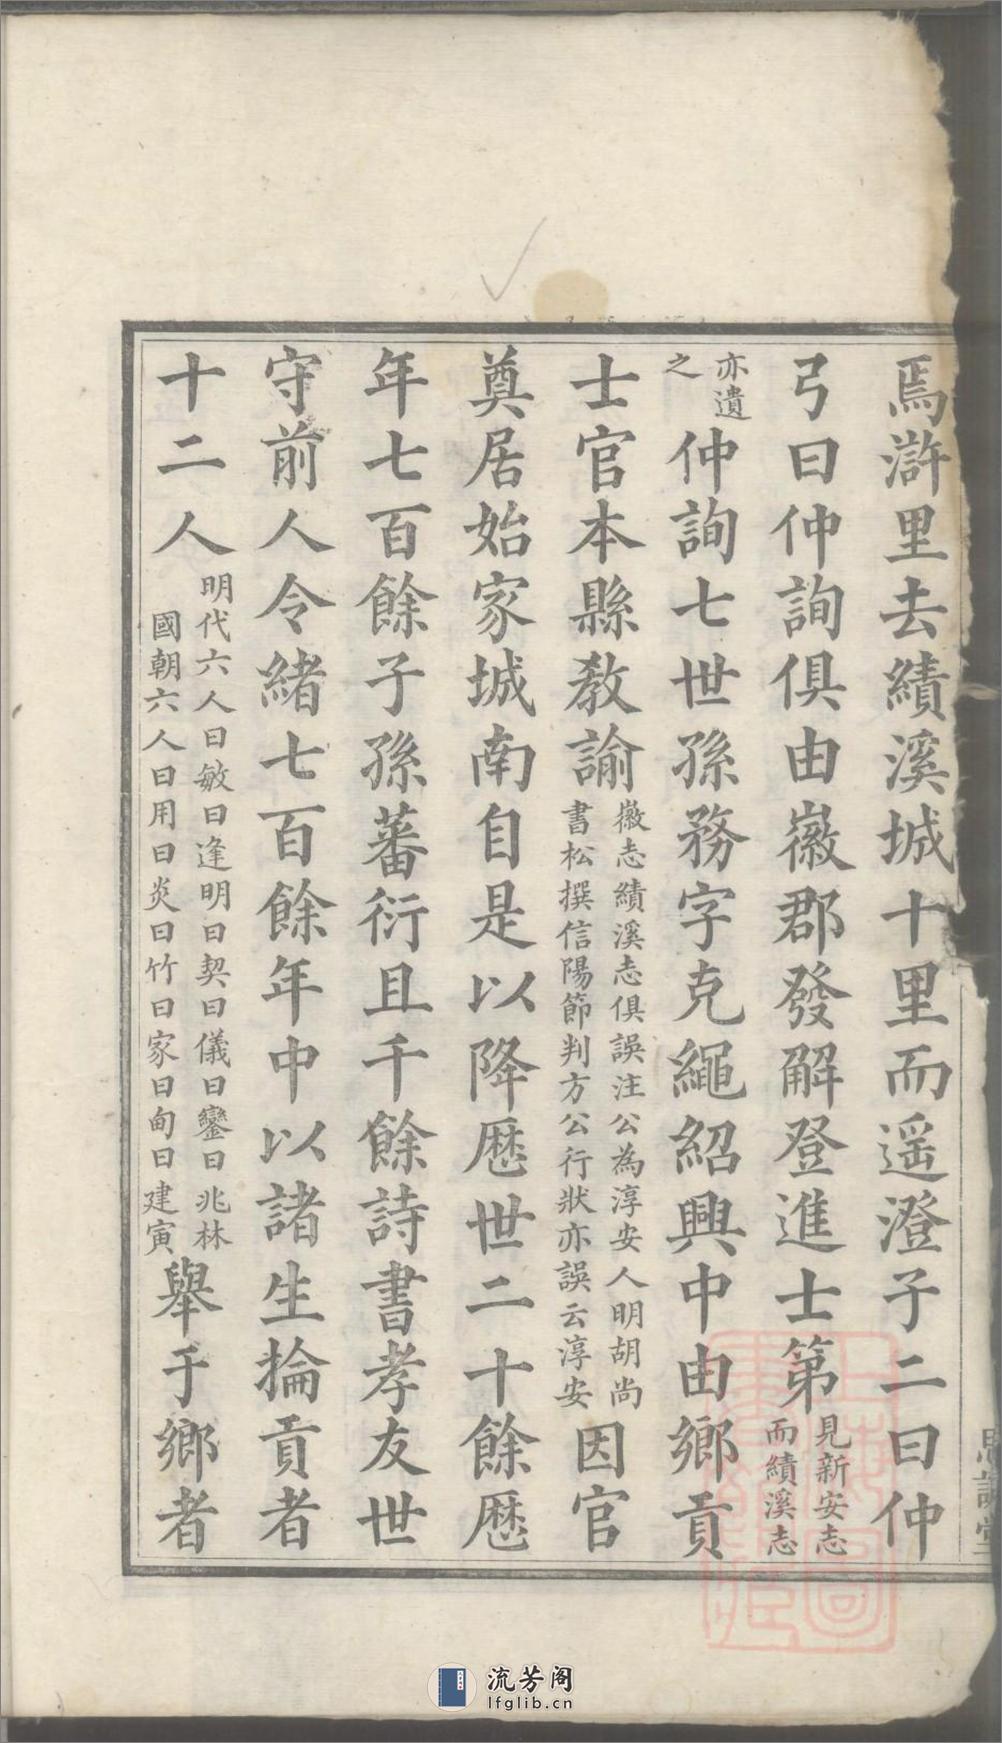 焉滸里去績溪城十里而遥澄子二曰仲
弓曰仲詢俱由徽郡發解登進士第見新安志而績溪志
亦遺之仲詢七世孫務字克繩紹興中由鄉貢
士官本縣教諭徽志績溪志俱誤注公為淳安人明胡尚書松撰信陽節判方公行狀亦誤云淳安因官
奠居始家城南自是以降歷世二十餘歷
年七百餘子孫蕃衍且千餘詩書孝友世
守前人令緒七百餘年中以諸生掄貢者
十二人明代六人曰敏曰逢明曰契曰儀曰鑾曰兆林國朝六人曰用曰炎曰竹曰家曰甸曰建寅舉于鄉者
流芳阁
lfglib.cn